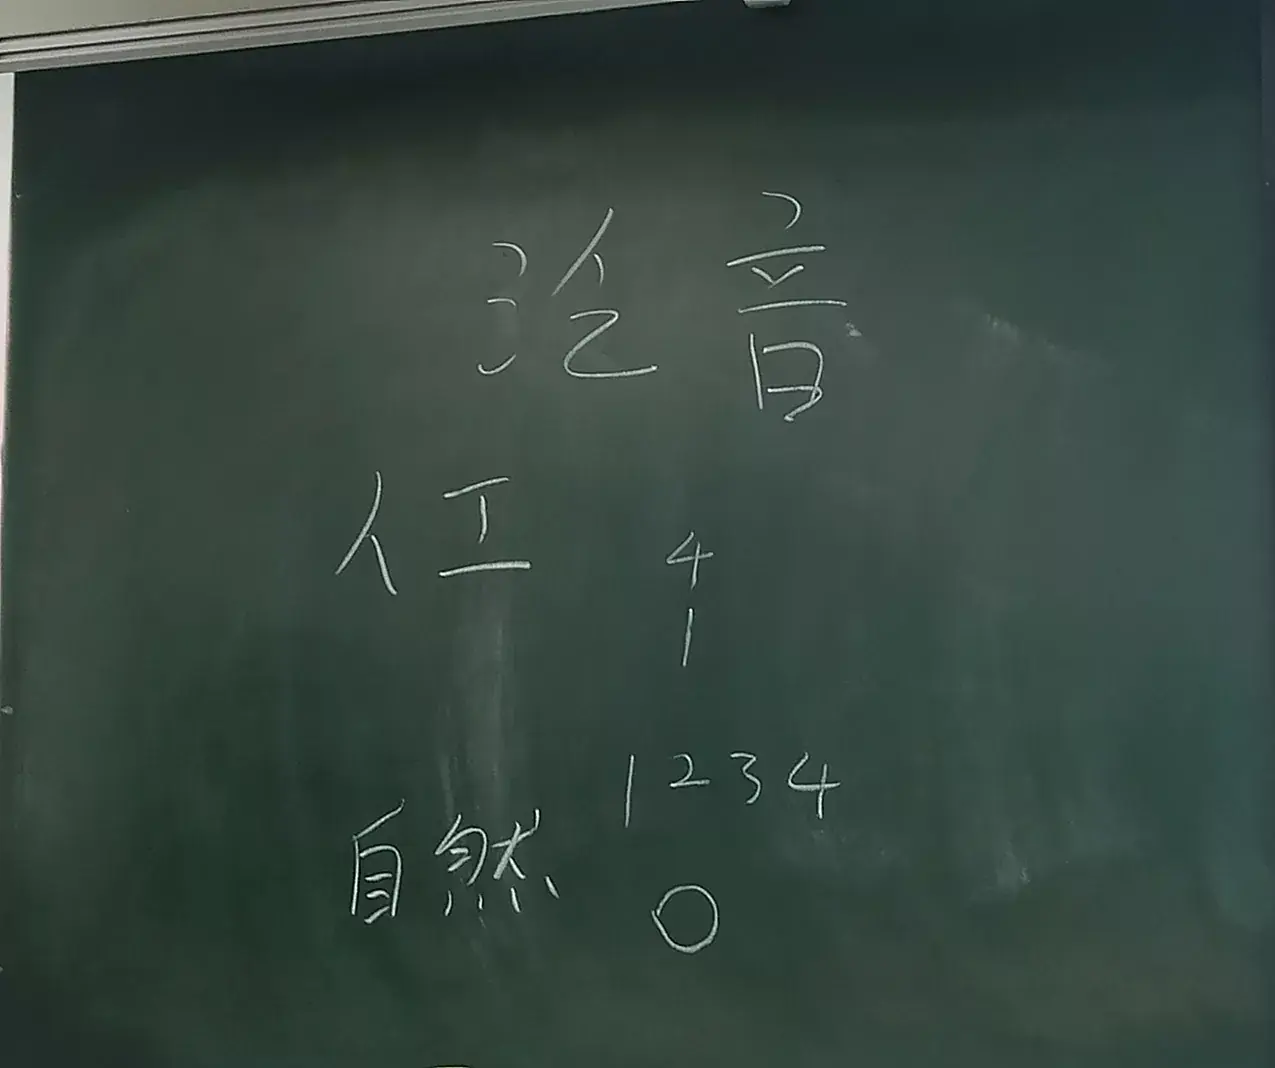 泛音
人工 4
1
1234
自然
0